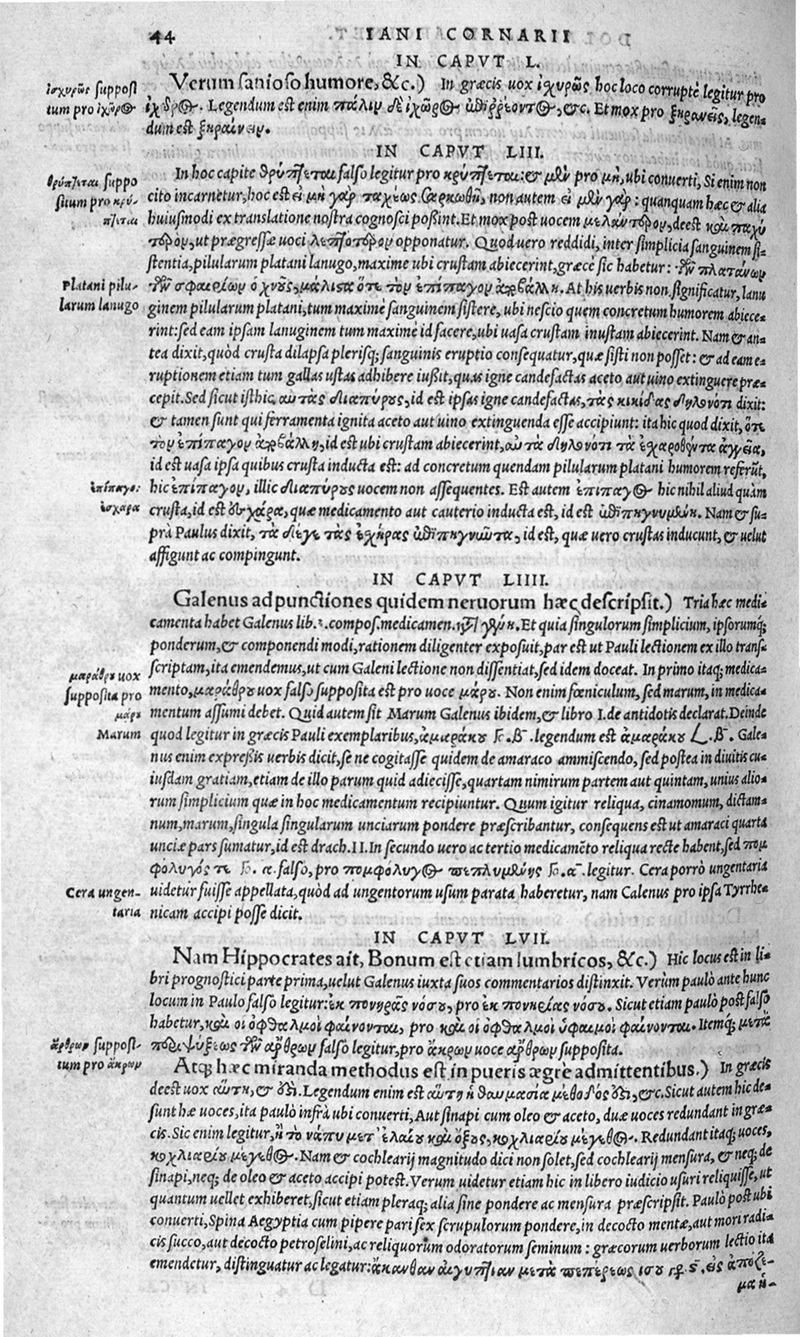 44 IANI CORNARII
IN CAPVT L.
ἰσχυρῶς supposi
tum pro ἰχῶρος
Verum sanioso humore, &c.) In græcis uox ἰχυρῶς hoc loco corruptè legitur pro
Legendum est enim πάλιν δὲ ἰχῶρος ἀποῤῥέοντος, &c. Et mox pro ξηρανθεὶς, legen
dum est ξηραίνειν.
IN CAPVT LIII.
θρύπτεται suppo
situm pro κρύ-
πτεται
In hoc capite θρύπτεται falso legitur pro κρύπτεται: & μὲν pro μὴ, ubi conuerti, Si enim non
cito incarnetur, hoc est εἰ μὴ γὰρ ταχέως σαρκωθῇ, non autem εἰ μὲν γὰρ: quanquam hæc & alia
huiusmodi ex translatione nostra cognosci possint. Et mox post uocem deest καὶ παχύ
τερον, ut prægressæ uoci λεπτότερον opponatur. Quod uero reddidi, inter simplicia sanguinem si-
stentia, pilularum platani lanugo, maxime ubi crustam abiecerint, græcè sic habetur: τῶν πλατάνων
Platani pilu-
larum lanugo
τῶν σφαιρίων ὁ χνοῦς, μάλιστα ὅτε τὸν ἐπίπαγον ἀποβάλλῃ. At his uerbis non significatur, lanu
ginem pilularum platani, tum maximè sanguinem sistere, ubi nescio quem concretum humorem abiece-
rint: sed eam ipsam lanuginem tum maximè id facere, ubi uasa crustam inustam abiecerint. Nam & an-
tea dixit, quòd crusta dilapsa plerisq; sanguinis eruptio consequatur, quæ sisti non posset: & ad eam e-
ruptionem etiam tum gallas ustas adhibere iußit, quas igne candefactas aceto aut uino extinguere præ-
cepit. Sed sicut isthic, αὐτὰς διαπύρους, id est ipsas igne candefactas, τὰς κικίδας δηλονότι dixit:
& tamen sunt qui ferramenta ignita aceto aut uino extinguenda esse accipiunt: ita hic quod dixit, ὅτε
τὸν ἐπίπαγον ἀποβάλλῃ, id est ubi crustam abiecerint, αὐτὰ δηλονότι τὰ ἐσχαρωθέντα ἀγγεῖα,
id est uasa ipsa quibus crusta inducta est: ad concretum quendam pilularum platani humorem referũt,
ἐπίπαγος
ἐσχάρα
hic ἐπίπαγον, illic διαπύρους uocem non assequentes. Est autem ἐπίπαγος hic nihil aliud quàm
crusta, id est ἐσχάρα, quæ medicamento aut cauterio inducta est, id est Nam & su-
prà Paulus dixit, τὰ δέ γε τὰς id est, quæ uero crustas inducunt, & uelut
affigunt ac compingunt.
IN CAPVT LIIII.
Galenus ad punctiones quidem neruorum hæc descripsit.) Tria hæc medi-
camenta habet Galenus lib. compos. medicamen. Et quia singulorum simplicium, ipsorumq;
ponderum, & componendi modi, rationem diligenter exposuit, par est ut Pauli lectionem ex illo trans-
scriptam, ita emendemus, ut cum Galeni lectione non dissentiat, sed idem doceat. In primo itaq; medica-
μαράθρου uox
supposita pro
μάρου
Marum
mento, μαράθρου uox falso supposita est pro uoce μάρου. Non enim fœniculum, sed marum, in medica-
mentum assumi debet. Quid autem sit Marum Galenus ibidem, & libro I. de antidotis declarat. Deinde
quod legitur in græcis Pauli exemplaribus, ἀμαράκου legendum est ἀμαράκου Gale-
nus enim expreßis uerbis dicit, se ne cogitasse quidem de amaraco ammiscendo, sed postea in diuitis cu-
iusdam gratiam, etiam de illo parum quid adiecisse, quartam nimirum partem aut quintam, unius alio-
rum simplicium quæ in hoc medicamentum recipiuntur. Quum igitur reliqua, cinamomum, dictam-
num, marum, singula singularum unciarum pondere præscribantur, consequens est ut amaraci quarta
unciæ pars sumatur, id est drach. II. In secundo uero ac tertio medicamēto reliqua recte habent, sed πομ-
φόλυγός falso, pro πομφόλυγος πεπλυμένης legitur. Cera porrò ungentaria
Cera ungen-
taria
uidetur fuisse appellata, quòd ad ungentorum usum parata haberetur, nam Calenus pro ipsa Tyrrhe-
nicam accipi posse dicit.
IN CAPVT LVII.
Nam Hippocrates ait, Bonum est etiam lumbricos, &c.) Hic locus est in li-
bri prognostici parte prima, uelut Galenus iuxta suos commentarios distinxit. Verùm paulò ante hunc
locum in Paulo falso legitur: ἐκ πονηρᾶς νόσου, pro ἐκ νόσου. Sicut etiam paulò post falso
habetur, καὶ οἱ ὀφθαλμοὶ φαίνονται, pro καὶ οἱ ὀφθαλμοὶ ὕφαιμοι φαίνονται. Itemq; μετὰ
ἄρθρων supposi-
tum pro ἄκρων
περιψύξεως τῶν ἄρθρων falso legitur, pro ἄκρων uoce ἄρθρων supposita.
Atq; hæc miranda methodus est in pueris ægre admittentibus.) In græcis
deest uox αὕτη, & ἐστὶ. Legendum enim est αὕτη ἡ θαυμασία μέθοδός ἐστι, &c. Sicut autem hic de-
sunt hæ uoces, ita paulò infrà ubi conuerti, Aut sinapi cum oleo & aceto, duæ uoces redundant in græ-
cis. Sic enim legitur, ἢ τὸ νάπυ μετ' ἐλαίου καὶ ὄξους, κοχλιαρίου μέγεθος. Redundant itaq; uoces,
κοχλιαρίου μέγεθος. Nam & cochlearij magnitudo dici non solet, sed cochlearij mensura, & neq; de
sinapi, neq; de oleo & aceto accipi potest. Verum uidetur etiam hic in libero iudicio usuri reliquisse, ut
quantum uellet exhiberet, sicut etiam pleraq; alia sine pondere ac mensura præscripsit. Paulò post ubi
conuerti, Spina Aegyptia cum pipere pari sex scrupulorum pondere, in decocto mentæ, aut mori radi-
cis succo, aut decocto petroselini, ac reliquorum odoratorum seminum: græcorum uerborum lectio ita
emendetur, distinguatur ac legatur: ἄκανθαν αἰγυπτίαν μετὰ πεπέρεως ἴσου εἰς ἀπόζε-
μα ἡ-